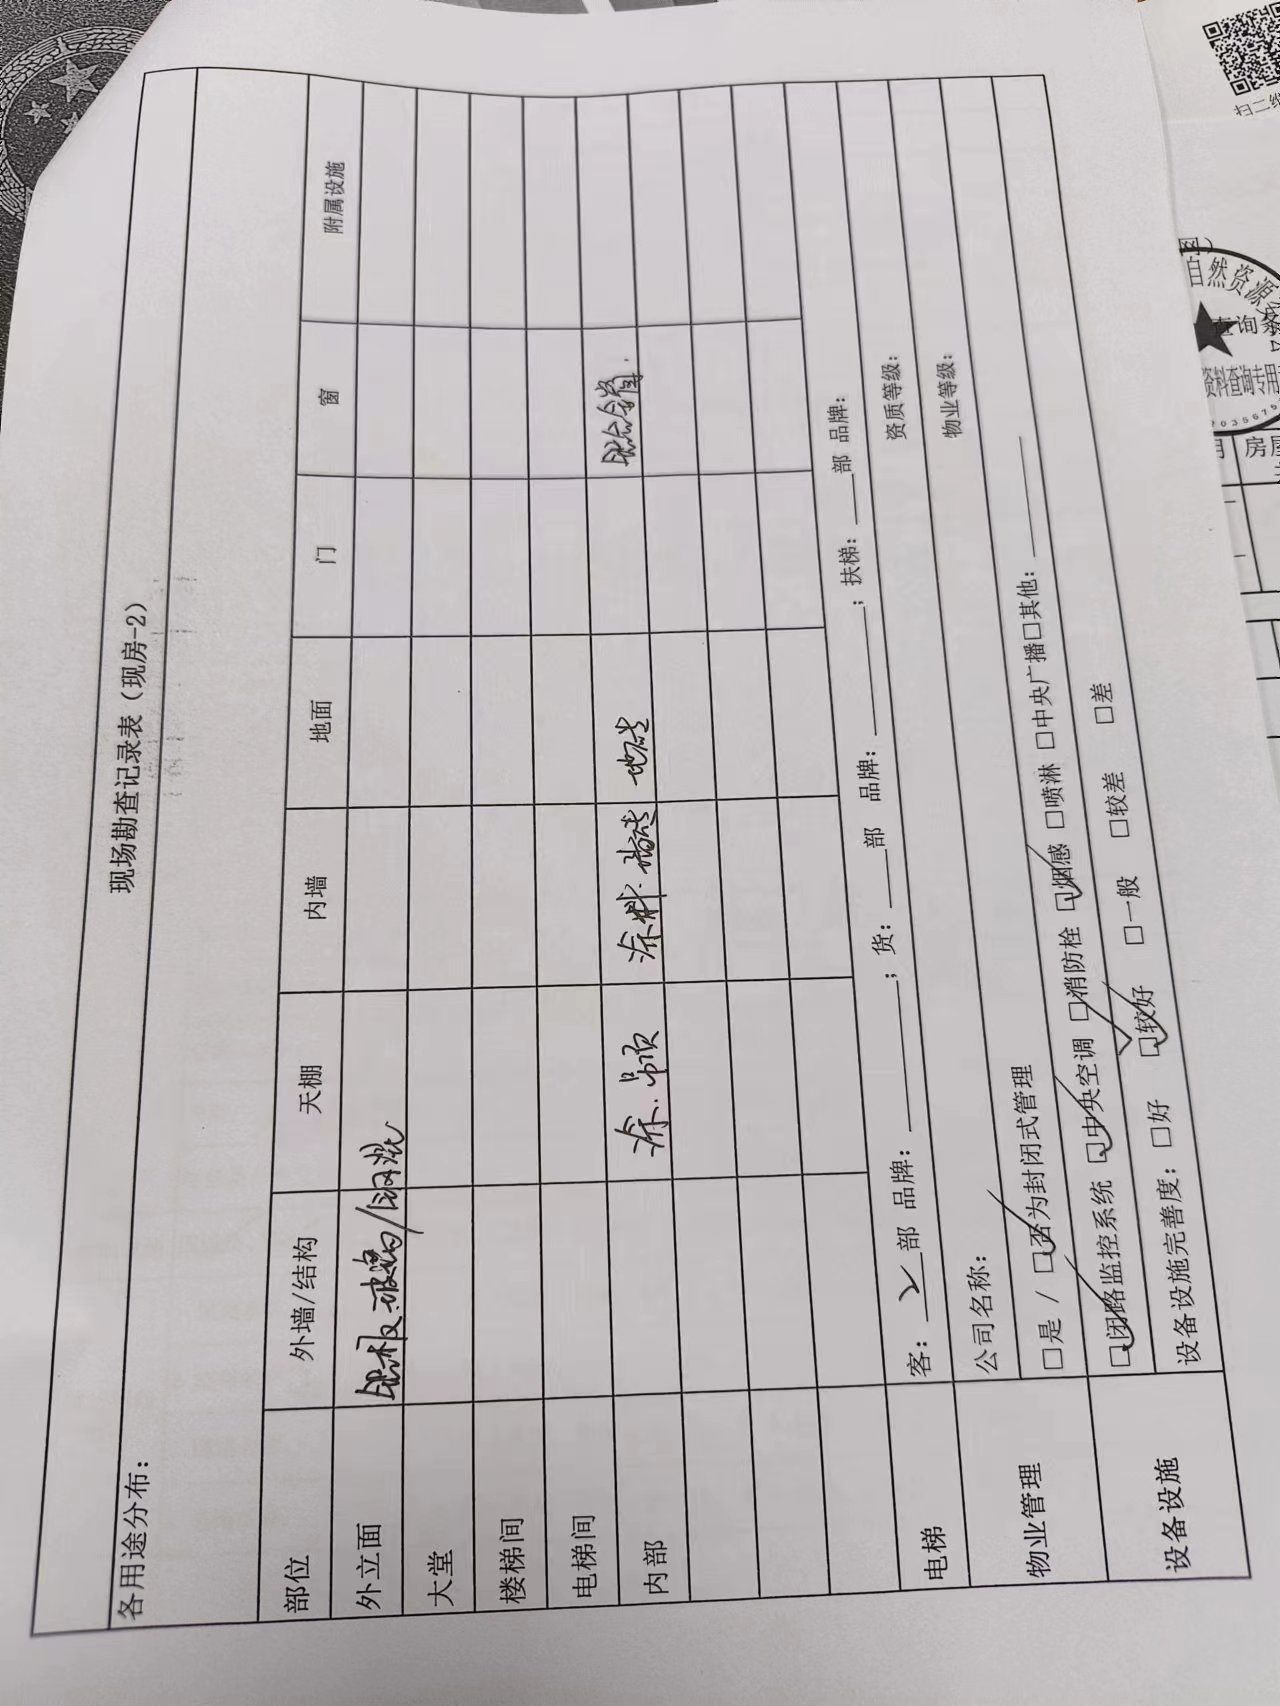 现场勘查记录表（现房-2）
各用途分布：
部位 外墙/结构 天棚 内墙 地面 门 窗 附属设施
外立面 铝板.玻璃/钢混
大堂
楼梯间
电梯间
内部 涂.吊顶 涂料.墙砖 地砖 铝合金
电梯 客：2部 品牌：______；货：___部 品牌：______；扶梯：___部 品牌：
物业管理 公司名称： 资质等级：
□是 / ☑否为封闭式管理 物业等级：
设备设施 ☑闭路监控系统 ☑中央空调 ☑消防栓 ☑烟感 □喷淋 □中央广播□其他：______
设备设施完善度：□好 ☑较好 □一般 □较差 □差
扫二维
网）
自然资源
查询
资料查询专用
035675
房屋